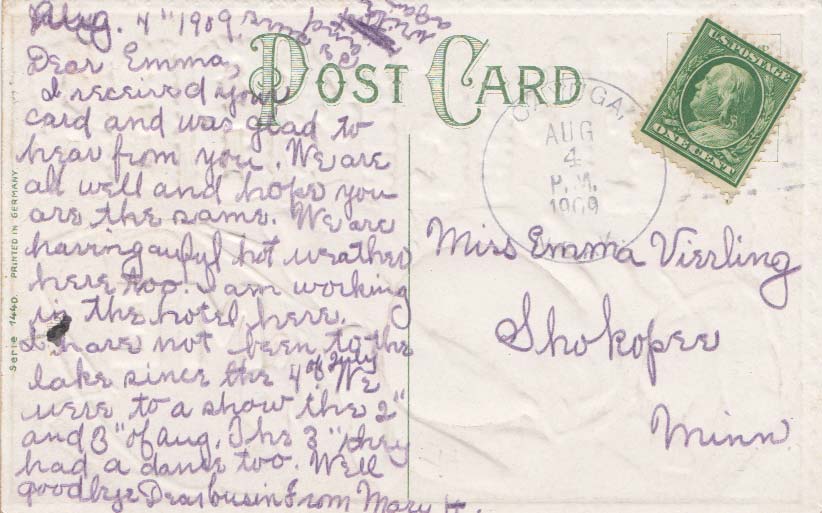 Aug. 4" 1909.
Dear Emma,
I received your
card and was glad to
hear from you. We are
all well and hope you
are the same. We are
having awful hot weather
here too. I am working
in the hotel here.
I have not been to the
lake since the 4 of July We
were to a show the 2"
and 3" of Aug. The 3" they
had a dance too. Well
goodbye Dear Cousin From Mary H.
write
again
POST CARD
AUG
4
P.M.
1909
U.S. POSTAGE
ONE CENT
Miss Emma Vierling
Shokopee
Minn
Serie 1440. PRINTED IN GERMANY.